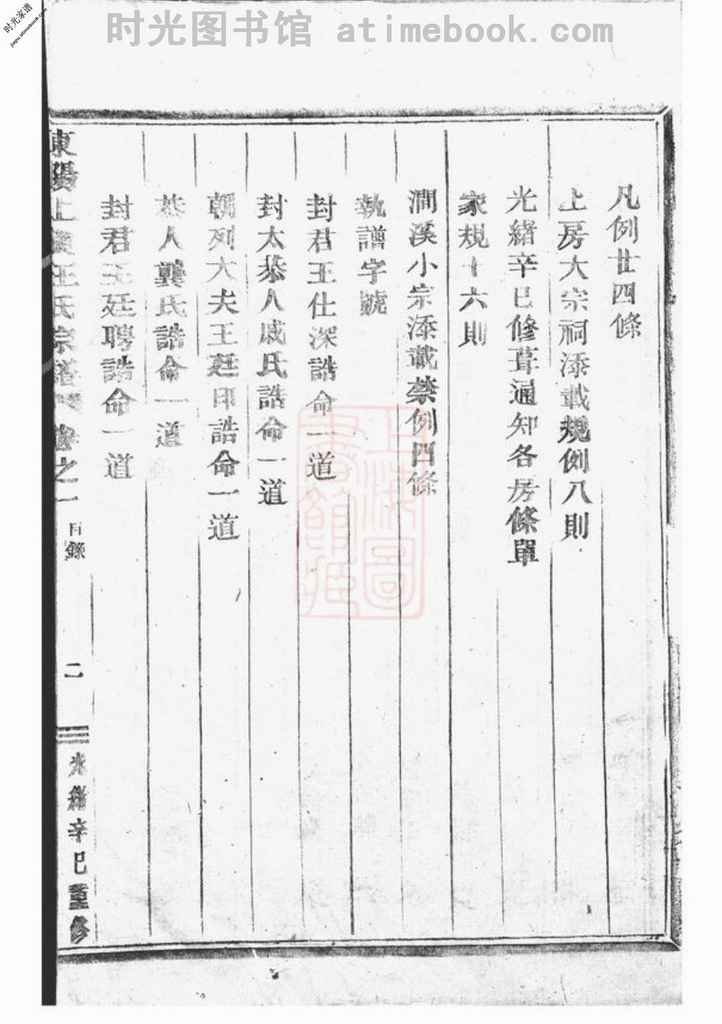 时光图书馆 atimebook.com
时光家谱
凡例廿四條
上房大宗祠添載規例八則
光緒辛巳修葺通知各房條單
家規十六則
澗溪小宗添載禁例四條
執譜字號
封君王仕深誥命一道
封太恭人戚氏誥命一道
朝列大夫王廷印誥命一道
恭人龔氏誥命一道
封君王廷聘誥命一道
東陽上 王氏宗譜 卷之一 目錄 二 光緒辛巳重修